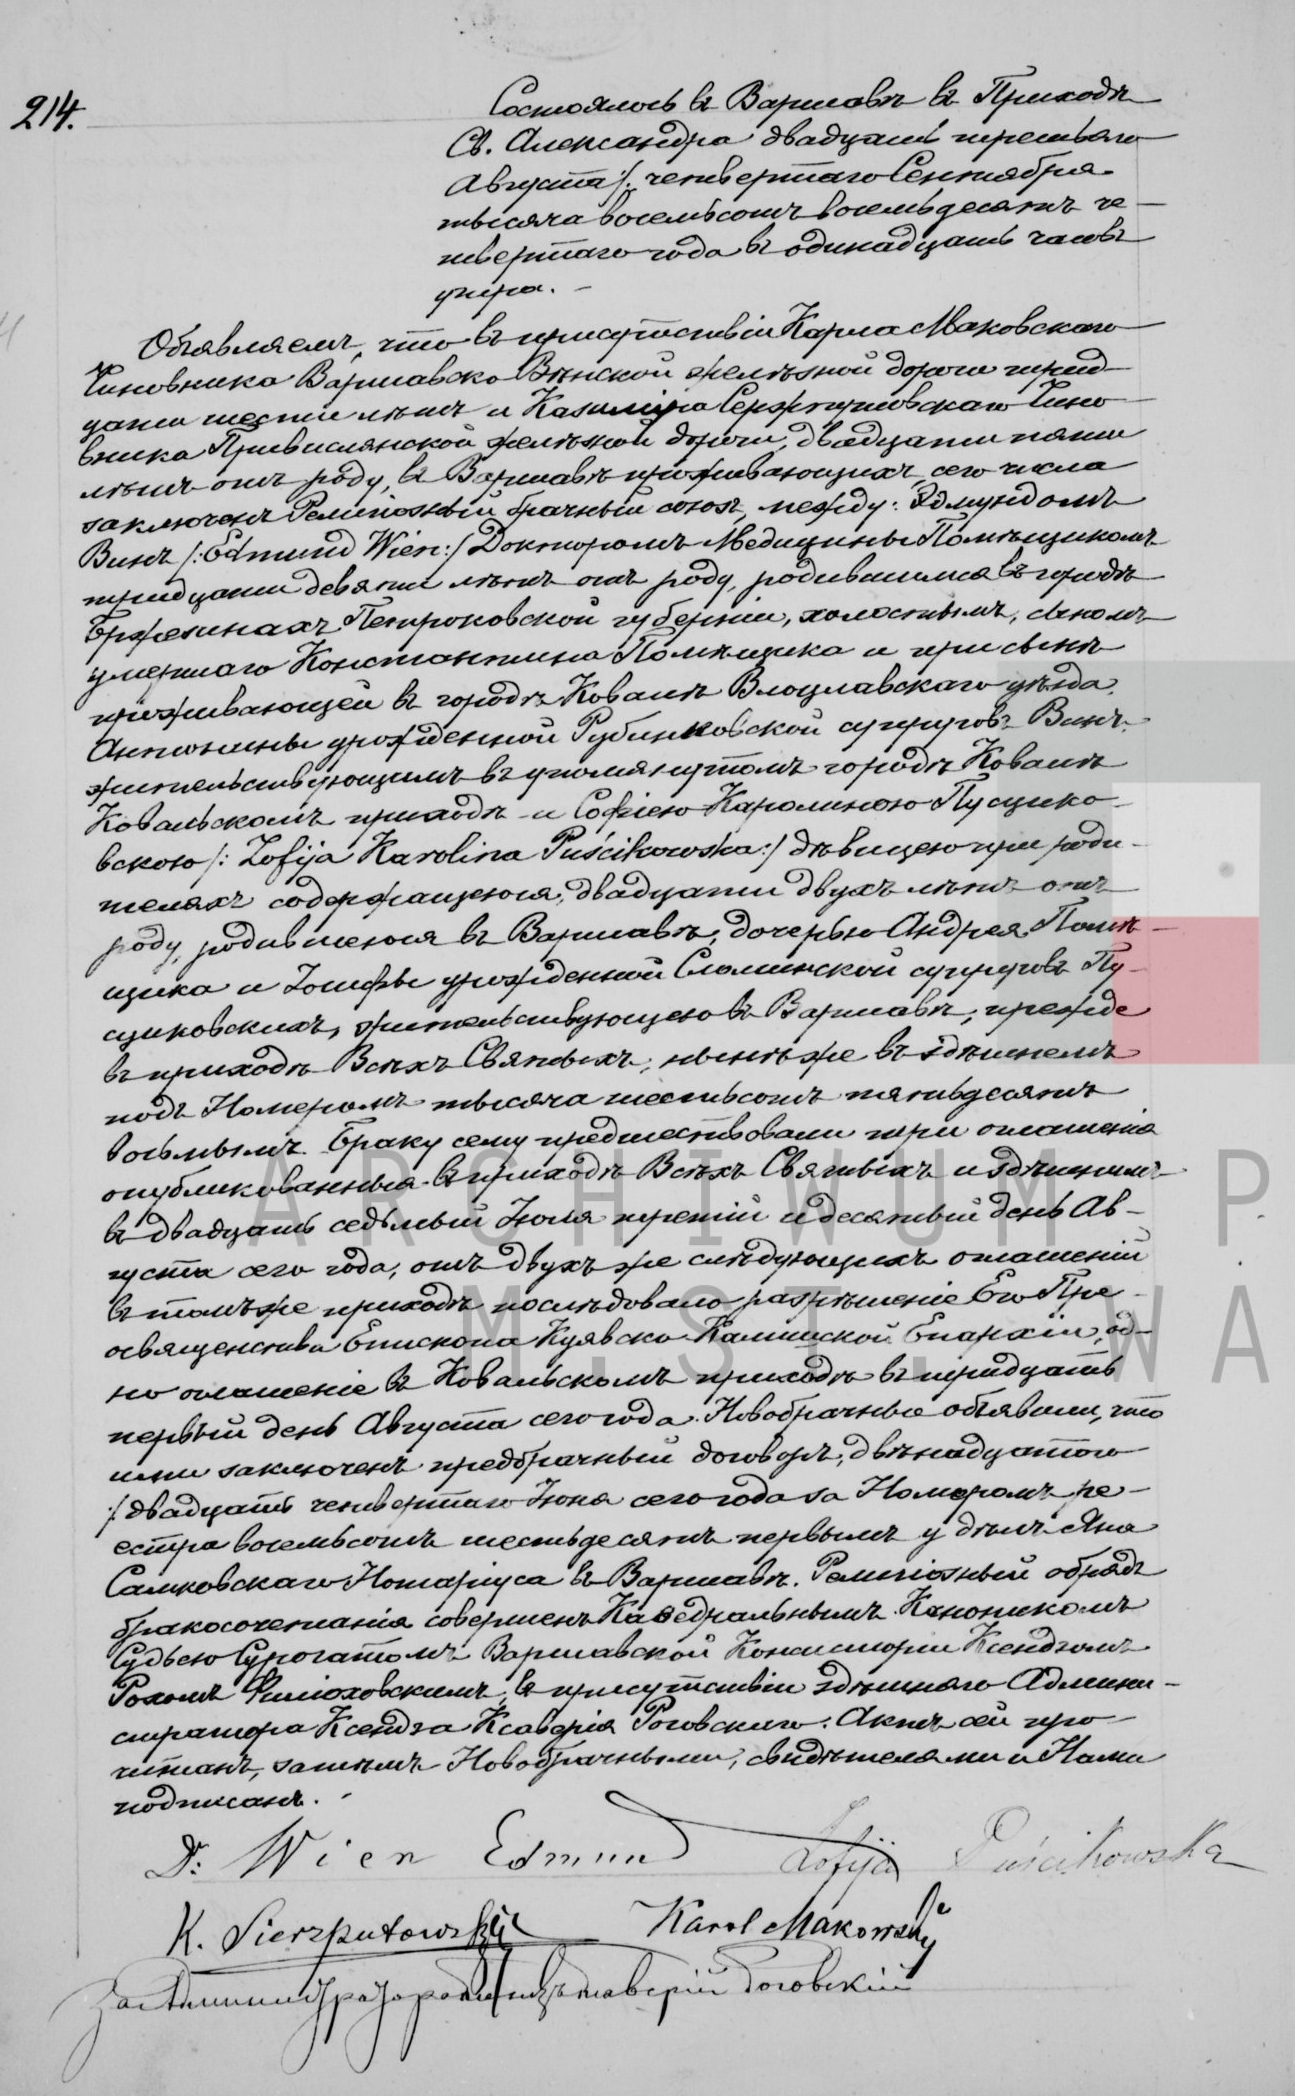 214.
Состоялось въ Варшавѣ въ Приходѣ
Св. Александра двадцать третьяго
Августа /. четвертаго Сентября
тысяча восемьсотъ восемьдесятъ че-
твертаго года въ одинадцать часовъ
утра. –
Объявляемъ, что въ присутствіи Карла Маковскаго
Чиновника Варшавско-Вѣнской желѣзной дороги трид-
цати шести лѣтъ и Казиміра Сержпутовскаго Чино-
вника Привислянской желѣзной дороги, двадцати пяти
лѣтъ отъ роду, въ Варшавѣ проживающихъ, сего числа
заключенъ Религіозный брачный союзъ, между: Эдмундомъ
Винъ /: Edmund Wien :/ Докторомъ Медицины Помѣщикомъ
тридцати девяти лѣтъ отъ роду, родившимся въ городѣ
Бржезинахъ Петроковской губерніи, холостымъ, сыномъ
умершаго Константина Помѣщика и при сынѣ
проживающей въ городѣ Ковалѣ Влоцлавскаго уѣзда,
Антонины урожденной Рубинковской супруговъ Винъ,
жительствующимъ въ упомянутомъ городѣ Ковалѣ
Ковальскомъ приходѣ – и Софіею Каролиною Пусцико-
вскою /: Zofija Karolina Puścikowska :/ дѣвицею при роди-
теляхъ содержащеюся, двадцати двухъ лѣтъ отъ
роду, родившеюся въ Варшавѣ, дочерью Андрея Помѣ-
щика и Іосифы урожденной Сломинской супруговъ Пу-
сциковскихъ, жительствующею въ Варшавѣ, прежде
въ приходѣ Всѣхъ Святыхъ, нынѣ же въ здѣшнемъ
подъ Номеромъ тысяча шестьсотъ пятьдесятъ
восьмымъ. Браку сему предшествовали три оглашенія
опубликованныя въ приходѣ Всѣхъ Святыхъ и здѣшнимъ
въ двадцать седьмый Іюля третій и десятый день Ав-
густа сего года, отъ двухъ же слѣдующихъ оглашеній
въ томъ же приходѣ послѣдовало разрѣшеніе Его Пре-
освященства Епископа Куявско-Калишской Епархіи, од-
но оглашеніе въ Ковальскомъ приходѣ въ тридцать
первый день Августа сего года. Новобрачные объявили, что
ими заключенъ предбрачный договоръ, двѣнадцатого
/ двадцать четвертаго Іюня сего года за Номеромъ ре-
естра восемьсотъ шестьдесятъ первымъ у дѣлъ Яна
Самковскаго Нотаріуса въ Варшавѣ. Религіозный обрядъ
бракосочетанія совершенъ Каѳедральнымъ Каноникомъ
Судьею Сурогатомъ Варшавской Консисторіи Ксендзомъ
Рохомъ въ присутствіи здѣшняго Админи-
стратора Ксендза Ксаверія Роговскаго. Актъ сей про-
читанъ, затѣмъ Новобрачными, свидѣтелями и Нами
подписанъ. –
Dr: Wien Edmund Zofija Puścikowska
K. Sierzputowski Karol Makowski
Роговскій
ARCHIWUM P
M.ST. WA